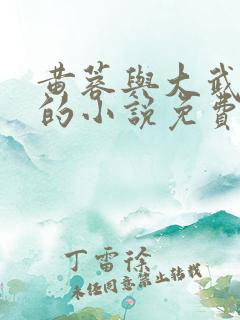 黄蓉與大武
的小說免費
丁雷徐
未任同意禁止转载